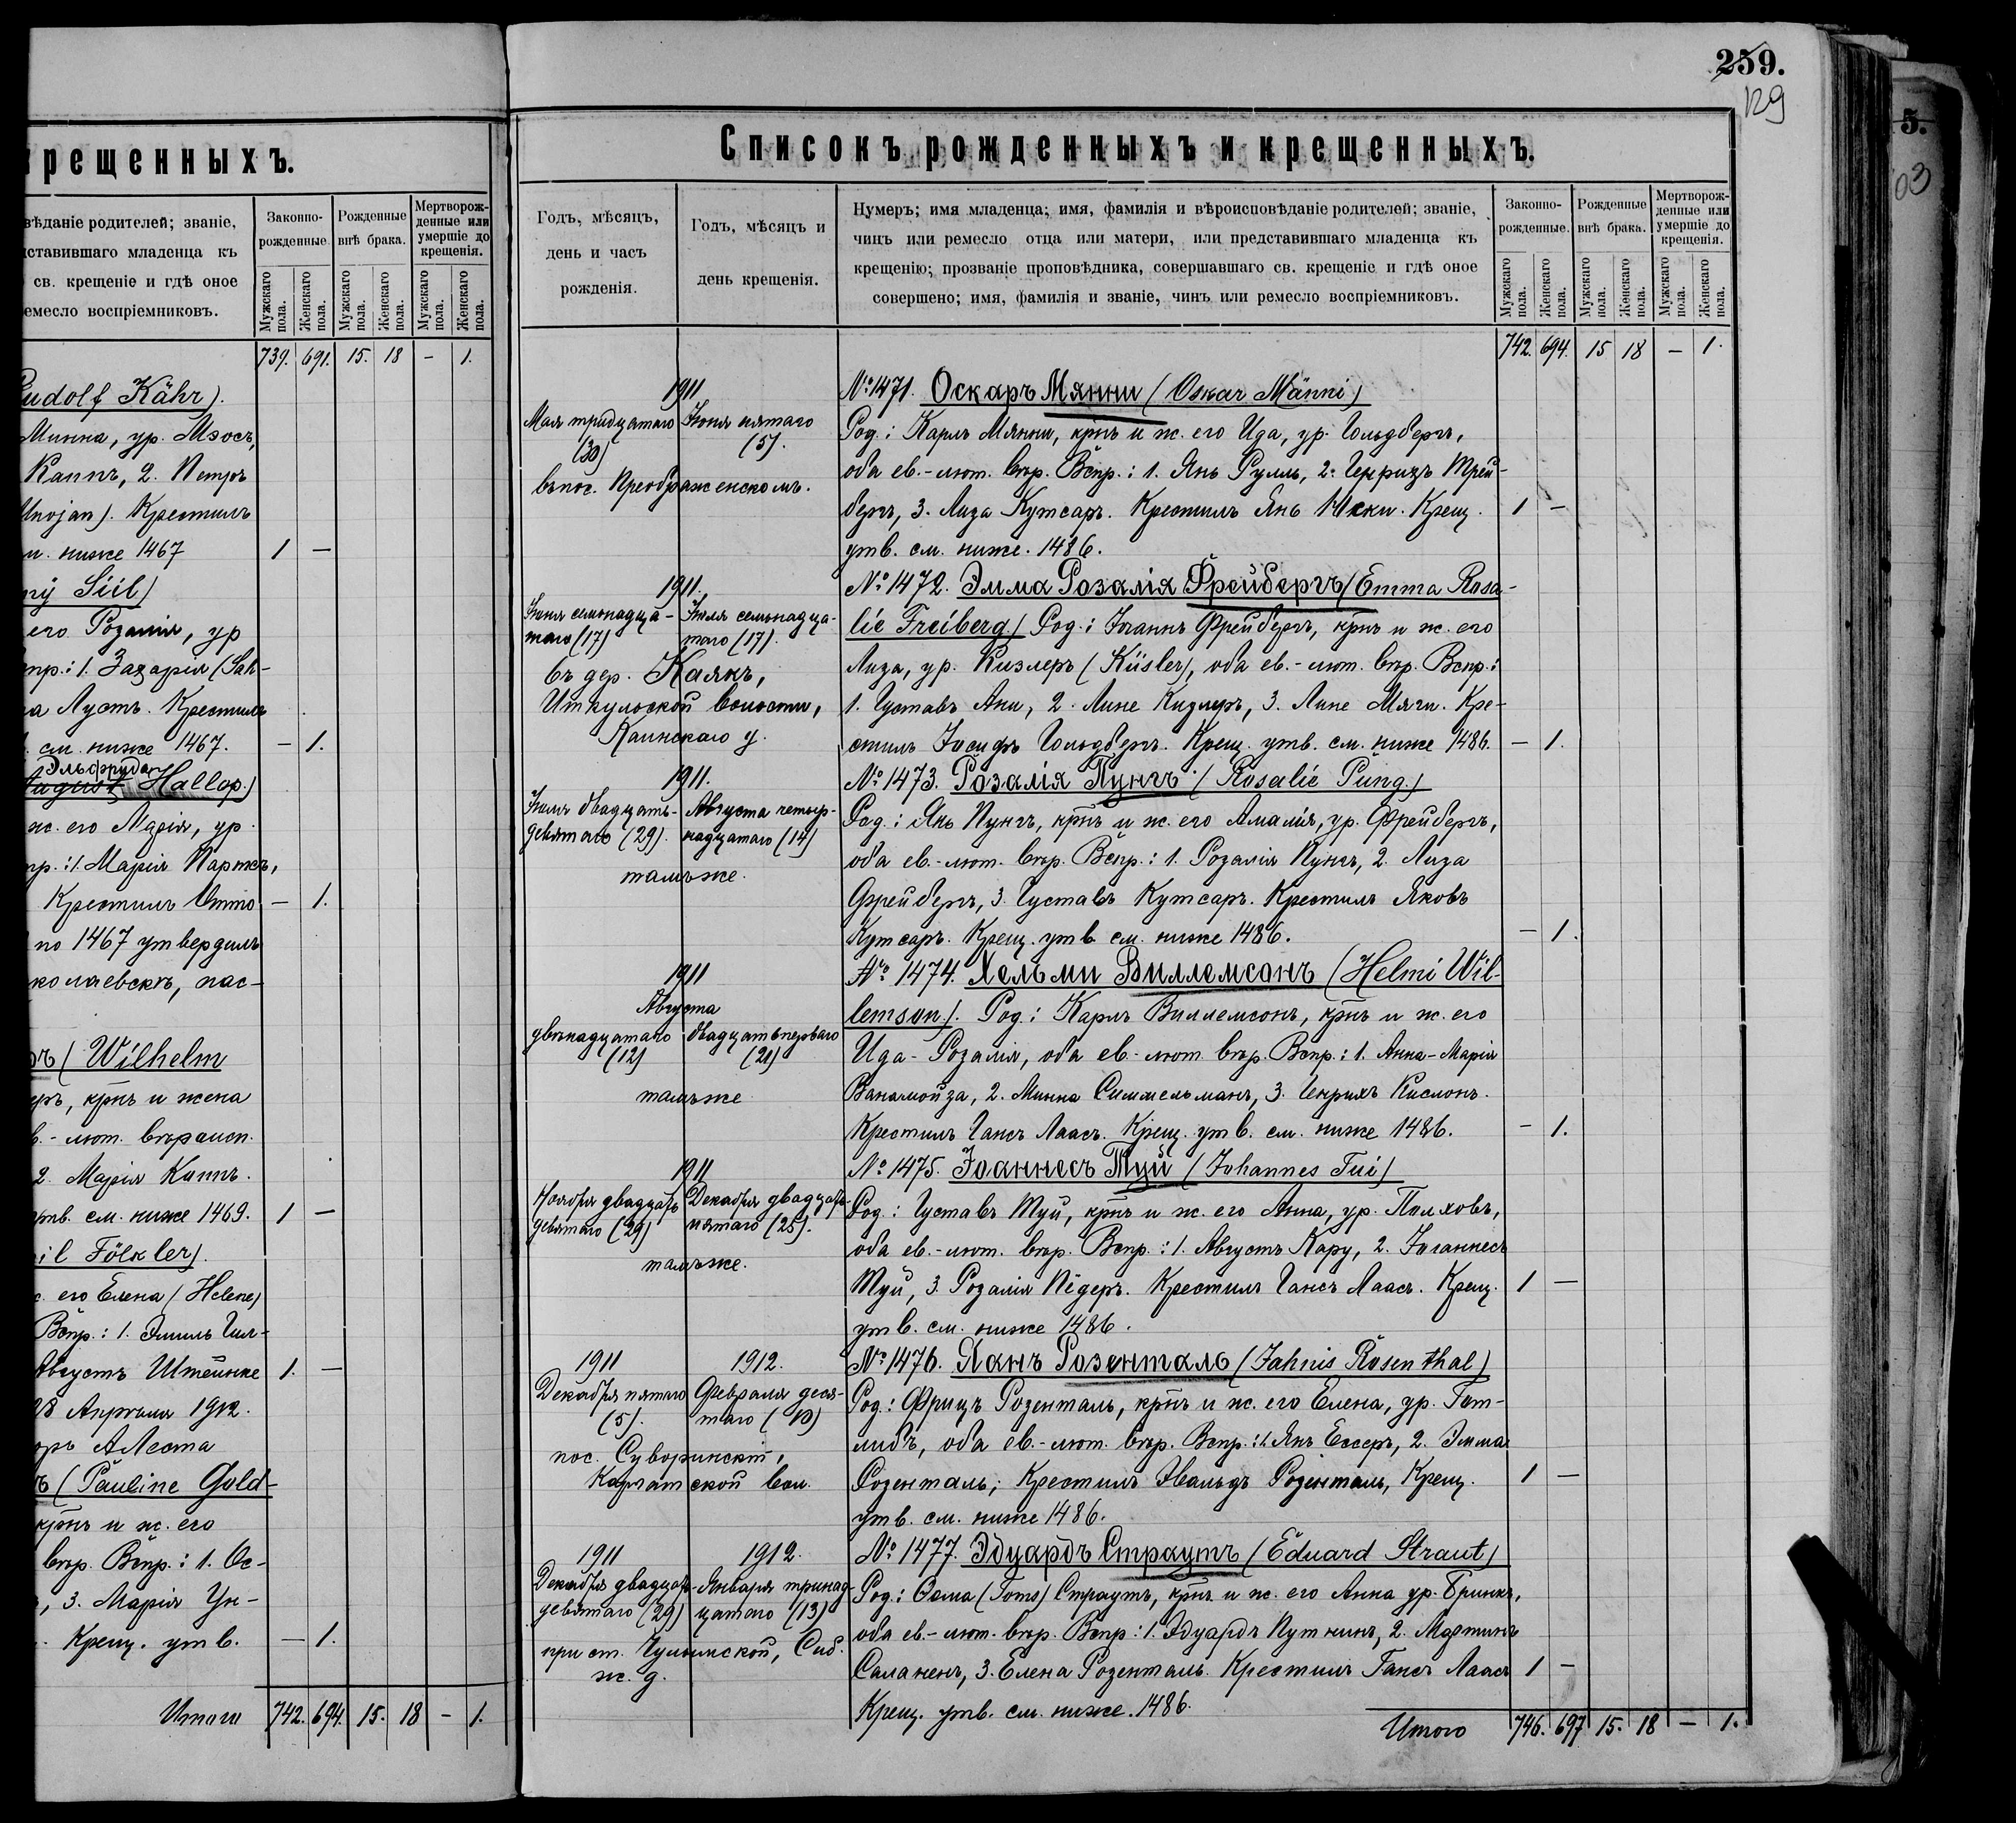 крещенныхъ.
вѣданіе родителей; званіе,
дставившаго младенца къ
св. крещеніе и гдѣ оное
емесло воспріемниковъ.
Законно-
рожденные.
Рожденные
внѣ брака.
Мертворож-
денные или
умершіе до
крещенія.
Мужскаго пола.
Женскаго пола.
Мужскаго пола.
Женскаго пола.
Мужскаго пола.
Женскаго пола.
739. 691. 15. 18 - 1.
Rudolf Kähr).
Минна, ур. Мэосъ,
Каппъ, 2. Петръ
Unojan). Крестилъ
ниже 1467 1 —
Siil)
его Розалія, ур
пр.: 1. Захарія (Sah-
а Лустъ. Крестилъ
см. ниже 1467. — 1.
Эльфрида
August Hallop.)
ж. его Марія, ур.
пр.: 1. Марія Партсъ,
Крестилъ Отто — 1.
по 1467 утвердилъ
колаевскѣ, пас-
ръ (Wilhelm
еръ, крнъ и жена
в.-лют. вѣроисп.
2. Марія Каппъ.
утв. см. ниже 1469. 1 —
il Fölkler).
с. его Елена (Helene)
Вспр.: 1. Эмиль Гил-
Августъ Штейнке 1. —
28 Апрѣля 1912.
оръ А Леста
ъ (Pauline Gold-
крнъ и ж. его
вѣр. Вспр.: 1. Ос-
, 3. Марія Ун-
Крещ. утв. — 1.
Итого 742. 694. 15. 18 - 1.
259.
129
Списокъ рожденныхъ и крещенныхъ.
Годъ, мѣсяцъ,
день и часъ
рожденія.
Годъ, мѣсяцъ и
день крещенія.
Нумеръ; имя младенца; имя, фамилія и вѣроисповѣданіе родителей; званіе,
чинъ или ремесло отца или матери, или представившаго младенца къ
крещенію; прозваніе проповѣдника, совершавшаго св. крещеніе и гдѣ оное
совершено; имя, фамилія и званіе, чинъ или ремесло воспріемниковъ.
Законно-
рожденные.
Рожденные
внѣ брака.
Мертворож-
денные или
умершіе до
крещенія.
Мужскаго пола.
Женскаго пола.
Мужскаго пола.
Женскаго пола.
Мужскаго пола.
Женскаго пола.
742. 694. 15 18 — 1.
1911
Мая тридцатаго (30)
Іюня пятаго (5).
въ пос. Преображенскомъ.
№ 1471. Оскаръ Мянни (Oskar Männi)
Род.: Карлъ Мянни, крнъ и ж. его Ида, ур. Гольдбергъ,
оба ев.-лют. вѣр. Вспр.: 1. Янъ Рулль, 2. Генрихъ Трей-
бергъ, 3. Лиза Кутсаръ. Крестилъ Янъ Иски. Крещ. 1 —
утв. см. ниже. 1486.
1911.
Іюня семьнадца-
таго (17)
Іюля семьнадца-
таго (17).
въ дер. Каякъ,
Иткульской волости,
Каинскаго у.
№ 1472. Эмма Розалія Фрейбергъ (Emma Rosa-
lie Freiberg) Род.: Іоганнъ Фрейбергъ, крнъ и ж. его
Лиза, ур. Кизлеръ (Küsler), оба ев.-лют. вѣр. Вспр.:
1. Густавъ Ани, 2. Лине Кизлеръ, 3. Лине Мяги. Кре-
стилъ Іосифъ Гольдбергъ. Крещ. утв. см. ниже 1486. — 1.
1911.
Іюля двадцать-
девятаго (29).
Августа четыр-
надцатаго (14)
тамъже.
№ 1473. Розалія Пунгъ (Rosalie Pung.)
Род.: Янъ Пунгъ, крнъ и ж. его Амалія, ур. Фрейбергъ,
оба ев.-лют. вѣр. Вспр.: 1. Розалія Пунгъ, 2. Лиза
Фрейбергъ, 3. Густавъ Кутсаръ. Крестилъ Яковъ
Кутсаръ. Крещ. утв см. ниже 1486. — 1.
1911
Августа
двѣнадцатаго (12)
двадцатьперваго (21)
тамъже
№ 1474. Хельми Виллемсонъ (Helmi Wil-
lemson). Род.: Карлъ Виллемсонъ, крнъ и ж. его
Ида-Розалія, оба ев.-лют. вѣр. Вспр.: 1. Анна-Марія
Ванамойза, 2. Минна Симмельманъ, 3. Генрихъ Кислонъ.
Крестилъ Гансъ Лаасъ. Крещ. утв. см. ниже 1486. — 1.
1911
Ноября двадцать
девятаго (29)
Декабря двадцать-
пятаго (25).
тамъже.
№ 1475. Іоаннесъ Туй (Johannes Tui)
Род.: Густавъ Туй, крнъ и ж. его Анна, ур. Полховъ,
оба ев.-лют. вѣр. Вспр.: 1. Августъ Кару, 2. Іоганнесъ
Туй, 3. Розалія Пёдеръ. Крестилъ Гансъ Лаасъ. Крещ. 1 —
утв. см. ниже 1486.
1911 1912.
Декабря пятаго (5).
Февраля деся-
таго (10)
пос. Суворинскій,
Каргатской вол.
№ 1476. Яанъ Розенталь (Jahnis Rosenthal)
Род.: Фрицъ Розенталь, крнъ и ж. его Елена, ур. Гот-
либъ, оба ев.-лют. вѣр. Вспр.: 1. Янъ Ессеръ, 2. Эмма
Розенталь; Крестилъ Эвальдъ Розенталь, Крещ. 1 —
утв. см. ниже 1486.
1911 1912.
Декабря двадцать-
девятаго (29)
Января тринад-
цатаго (13)
при ст. Чулымской, Сиб.
ж. д.
№ 1477. Эдуардъ Страутъ (Eduard Straut)
Род.: Ѳома (Toms) Страутъ, крнъ и ж. его Анна ур. Бринкъ,
оба ев.-лют. вѣр. Вспр: 1. Эдуардъ Путнинъ, 2. Мартинъ
Саланенъ, 3. Елена Розенталь. Крестилъ Гансъ Лаасъ 1 —
Крещ. утв. см. ниже. 1486.
Итого 746. 697 15. 18 — 1.
5.
03